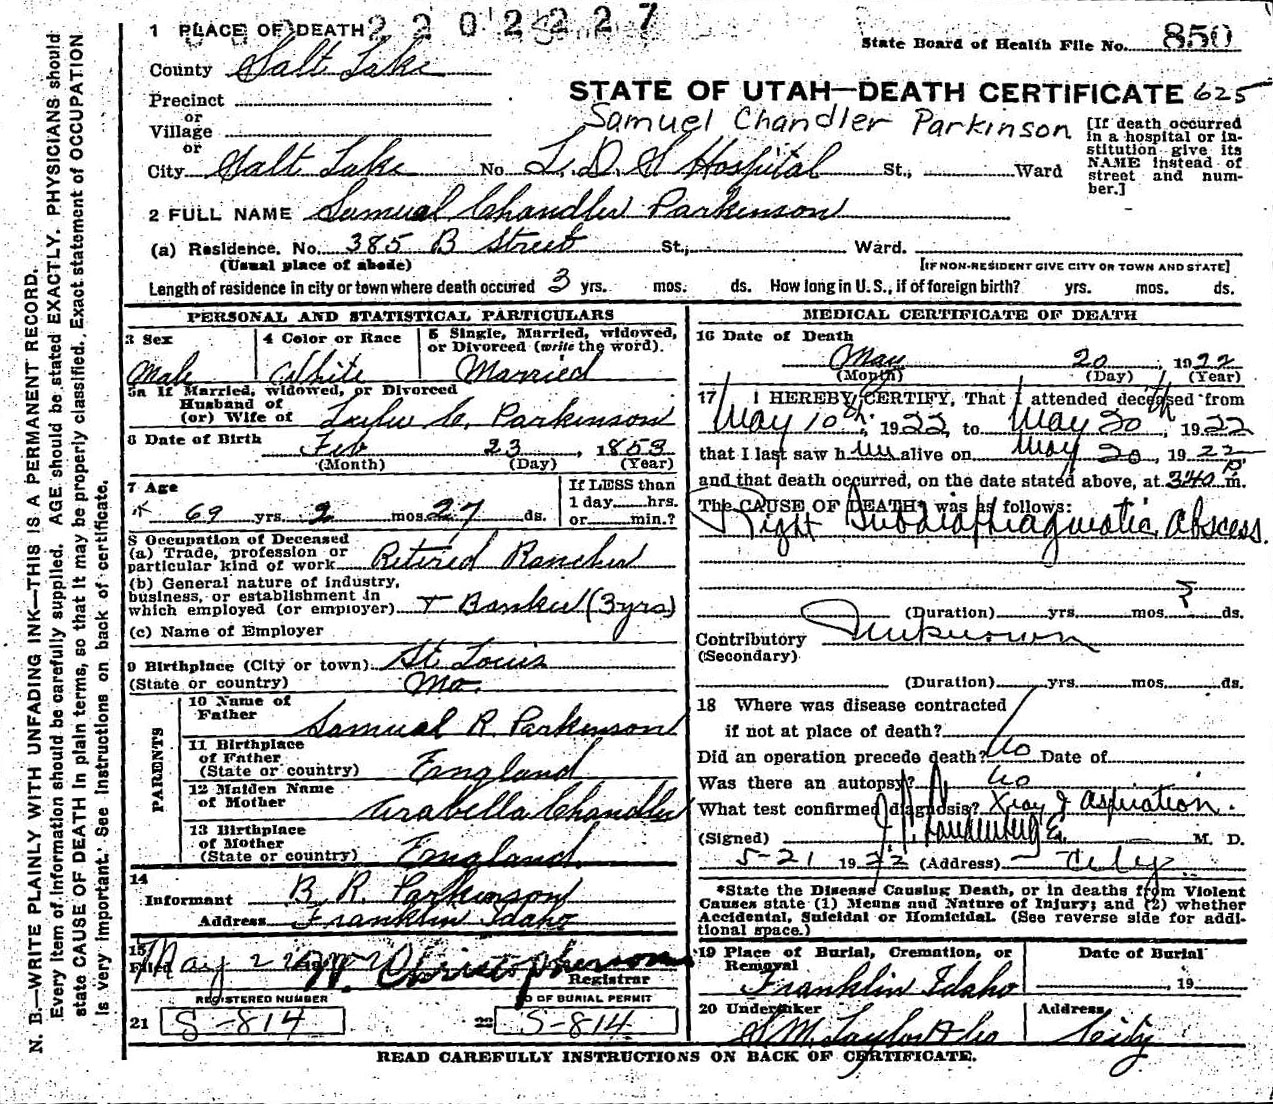 2202227
1 PLACE OF DEATH
State Board of Health File No. 850
County Salt Lake
STATE OF UTAH—DEATH CERTIFICATE 625
Precinct
or
Samuel Chandler Parkinson
Village
or
[If death occurred in a hospital or institution give its NAME instead of street and number.]
City Salt Lake No L.D.S Hospital St., Ward
2 FULL NAME Samual Chandler Parkinson
(a) Residence. No. 385 B Street St., Ward.
(Usual place of abode) [IF NON-RESIDENT GIVE CITY OR TOWN AND STATE]
Length of residence in city or town where death occured 3 yrs. mos. ds. How long in U. S., if of foreign birth? yrs. mos. ds.
PERSONAL AND STATISTICAL PARTICULARS
3 Sex
Male
4 Color or Race
White
5 Single, Married, widowed,
or Divorced (write the word).
Married
5a If Married, widowed, or Divorced
Husband of
(or) Wife of C. Parkinson
6 Date of Birth
Feb 23, 1853
(Month) (Day) (Year)
7 Age
* 69 yrs. 2 mos. 27 ds.
If LESS than
1 day hrs.
or min.?
8 Occupation of Deceased
(a) Trade, profession or
particular kind of work Retired Rancher
(b) General nature of industry,
business, or establishment in
which employed (or employer) + Banker (3 yrs)
(c) Name of Employer
9 Birthplace (City or town) St. Louis
(State or country) Mo.
PARENTS
10 Name of
Father Samual R. Parkinson
11 Birthplace
of Father
(State or country) England
12 Maiden Name
of Mother Arabella Chandler
13 Birthplace
of Mother
(State or country) England
14
Informant B. R. Parkinson
Address Franklin Idaho
15
Filed May 22 19 W. Christopherson
Registrar
REGISTERED NUMBER
21 S-814
NO OF BURIAL PERMIT
22 S-814
MEDICAL CERTIFICATE OF DEATH
16 Date of Death
May 20, 1922
(Month) (Day) (Year)
17 I HEREBY CERTIFY, That I attended deceased from
May 10th, 1922, to May 20th, 1922
that I last saw him alive on May 20, 1922
and that death occurred, on the date stated above, at 340 P m.
The CAUSE OF DEATH* was as follows:
Right Subdiaphragmatic Abscess.
(Duration) yrs. mos. ? ds.
Contributory Unknown
(Secondary)
(Duration) yrs. mos. ds.
18 Where was disease contracted
if not at place of death?
Did an operation precede death? No Date of
Was there an autopsy? No
What test confirmed diagnosis? Xray & aspiration.
(Signed) M. D.
5-21 1922 (Address) City
*State the Disease Causing Death, or in deaths from Violent
Causes state (1) Means and Nature of Injury; and (2) whether
Accidental, Suicidal or Homicidal. (See reverse side for addi-
tional space.)
19 Place of Burial, Cremation, or
Removal
Franklin Idaho
Date of Burial
, 19
20 Undertaker
S. M. Taylor & Co
Address
City
READ CAREFULLY INSTRUCTIONS ON BACK OF CERTIFICATE.
N. B.—WRITE PLAINLY WITH UNFADING INK—THIS IS A PERMANENT RECORD.
Every item of information should be carefully supplied. AGE should be stated EXACTLY. PHYSICIANS should
state CAUSE OF DEATH in plain terms, so that it may be properly classified. Exact statement of OCCUPATION
is very important. See instructions on back of certificate.